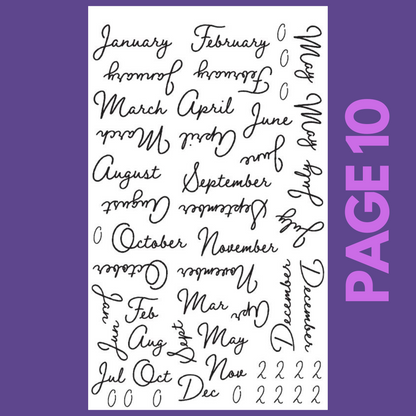 January February 0
0
0
May
January February
March April June
May
March April June
August September
July
August September
July
0 October November
October November
December
December
Jan Feb Mar Apr
Jun Aug Sept May
Jul Oct Nov 2 2 2 2
0 0 0 Dec 0 2 2 2 2
PAGE 10